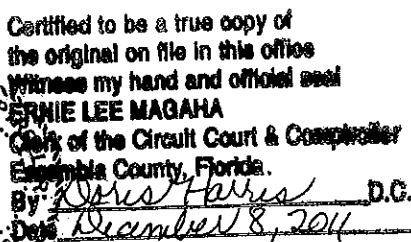 Certified to be a true copy of
the original on file in this office
Witness my hand and official seal
ERNIE LEE MAGAHA
Clerk of the Circuit Court & Comptroller
Escambia County, Florida.
By: Doris Harris D.C.
Date December 8, 2011